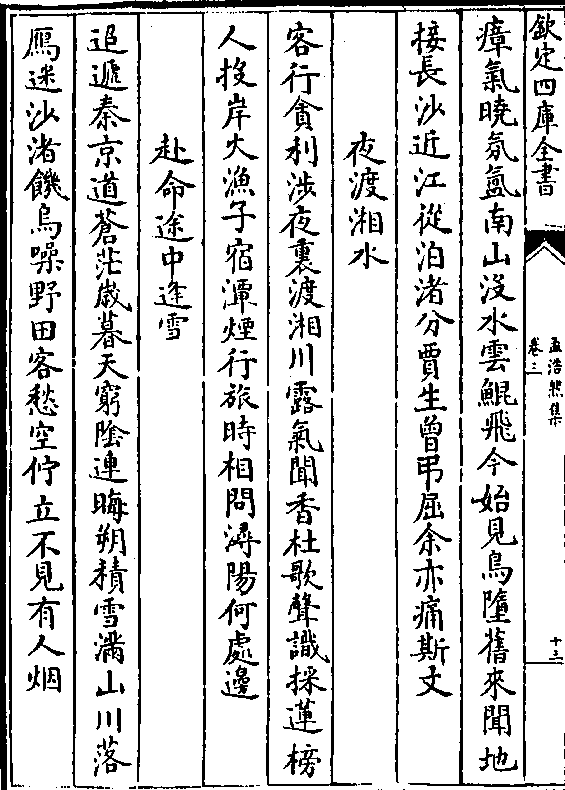 欽定四庫全書
孟浩然集
卷三
十三
瘴氣曉氛氲南山没水雲鯤飛今始見鳥墮舊來聞地
接長沙近江從泊渚分賈生曽弔屈余亦痛斯文
夜渡湘水
客行貪利涉夜裏渡湘川露氣聞香杜歌聲識採蓮榜
人投岸火漁子宿潭煙行旅時相問潯陽何處邊
赴命途中逢雪
迢遞秦京道蒼茫嵗暮天窮隂連晦朔積雪滿山川落
鴈迷沙渚饑烏噪野田客愁空佇立不見有人烟